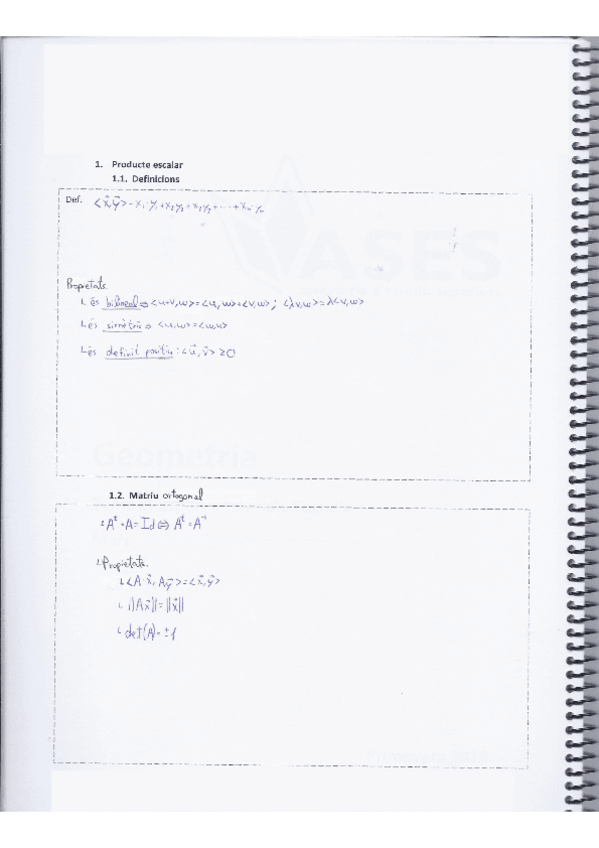 1. Producte escalar
1.1. Definicions
Def. <x⃗,y⃗> = x₁·y₁+x₂y₂+x₃y₃+...+xₙ·yₙ
Propietats.
↳ és bilineal ⇒ <u+v,w>=<u,w>+<v,w>; <λv,w>=λ<v,w>
↳ és simètric ⇒ <u,w>=<w,u>
↳ és definit positiu: <u⃗,v⃗> ≥0
Geometria
1.2. Matriu ortogonal
↳ Aᵗ·A=Id ⇔ Aᵗ=A⁻¹
↳ Propietats.
↳ <A·x⃗, A·y⃗>=<x⃗,y⃗>
↳ ||Ax⃗||=||x⃗||
↳ det(A)=±1